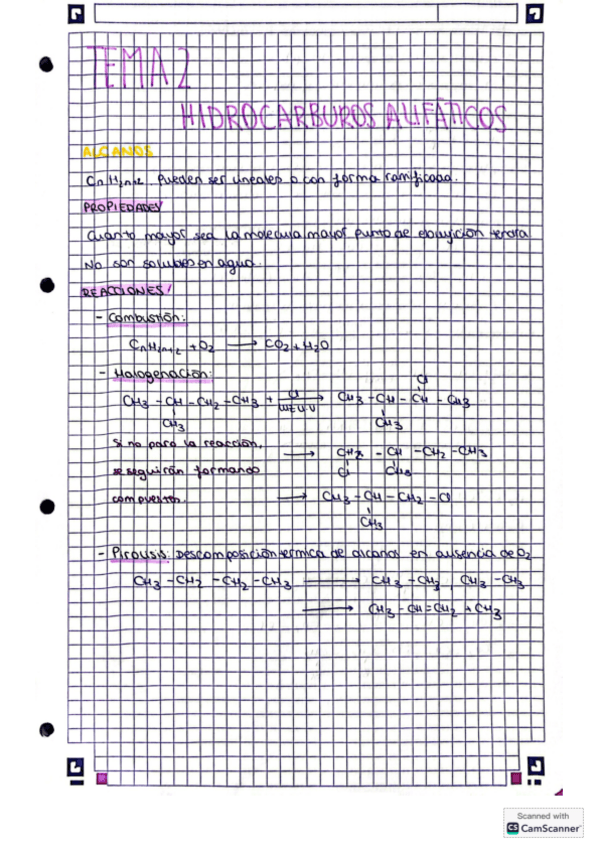 TEMA 2
HIDROCARBUROS ALIFÁTICOS
ALCANOS
CnH2n+2. Pueden ser lineales o con forma ramificada.
PROPIEDADES
Cuanto mayor sea la molecula mayor punto de ebullición tendra
No son solubles en agua.
REACCIONES
- Combustión:
CnH2n+2 + O2 ⟶ CO2 + H2O
- Halogenación:
Cl
CH3 - CH - CH2 - CH3 + Cl ⟶ CH3 - CH - CH - CH3
luz u.v
CH3 CH3
Si no para la reacción, ⟶ CH2 - CH - CH2 - CH3
se seguirán formando Cl CH3
compuestos. ⟶ CH3 - CH - CH2 - Cl
CH3
- Pirolisis: Descomposición térmica de alcanos en ausencia de O2
CH3 - CH2 - CH2 - CH3 ⟶ CH3 - CH3, CH3 - CH3
⟶ CH3 - CH = CH2 + CH3
Scanned with
CS CamScanner